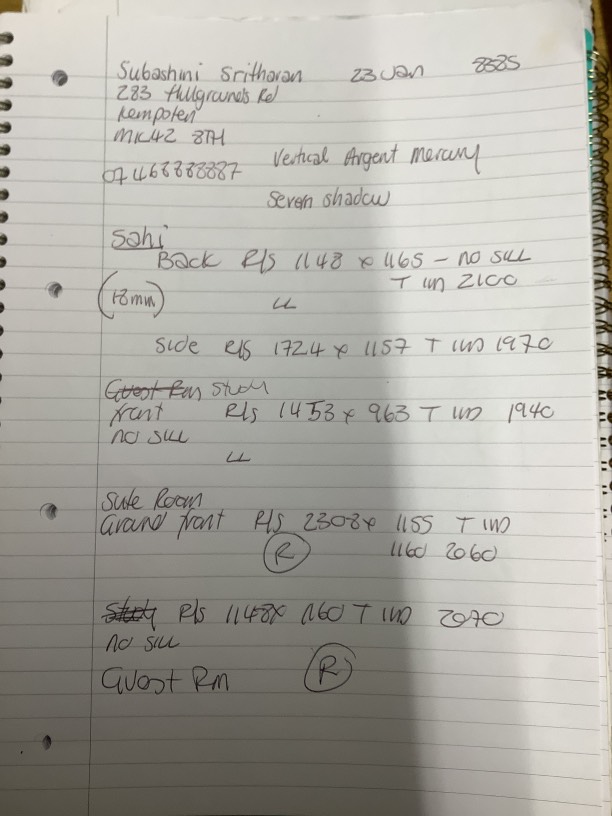 Subashini Sritharan 23 Jan 8385
283 Hillgrounds Rd
Kempoten
MK42 8TH
07468888887 Vertical Argent Mercury
Seven shadow
Sahi
Back R/S 1148 x 1165 - no sill
T up 2100
(18mm) LL
Side R/S 1724 x 1157 T up 1970
Guest Rm Study
front R/S 1453 x 963 T up 1940
no sill
LL
Suke Room
Ground front R/S 2308 x 1155 T up
(R) 1160 2060
Study R/S 1148x 1160 T up 2070
no sill
Guest Rm (R)